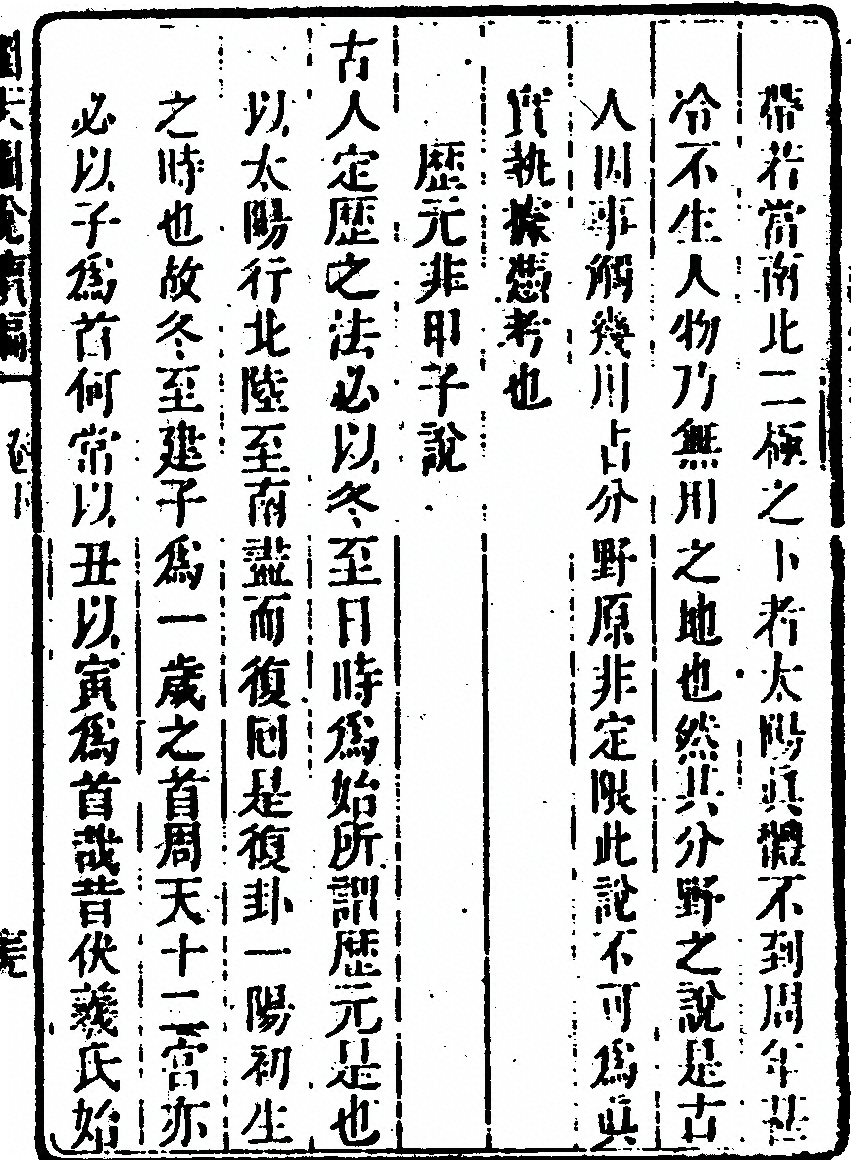 帶若當南北二極之下者太陽眞體不到周年甚
冷不生人物乃無用之地也然其分野之說是古
人因事解幾用占分野原非定限此說不可爲眞
實執據憑考也
歷元非甲子說
古人定歷之法必以冬至日時爲始所謂歷元是也
以太陽行北陸至南盡而復囘是復卦一陽初生
之時也故冬至建子爲一歲之首周天十二宮亦
必以子爲首何常以丑以寅爲首哉昔伏羲氏始